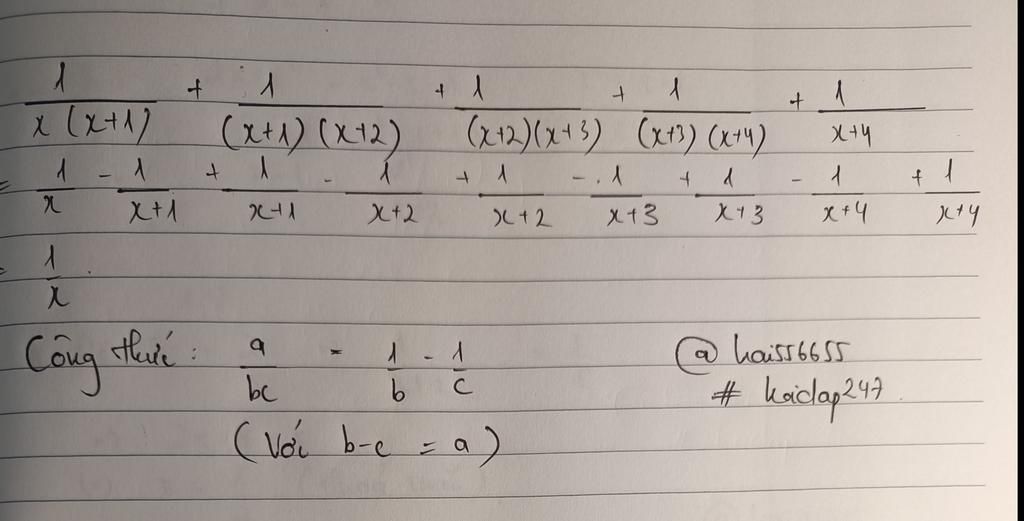 1/(x(x+1)) + 1/((x+1)(x+2)) + 1/((x+2)(x+3)) + 1/((x+3)(x+4)) + 1/(x+4)
= 1/x - 1/(x+1) + 1/(x+1) - 1/(x+2) + 1/(x+2) - 1/(x+3) + 1/(x+3) - 1/(x+4) + 1/(x+4)
= 1/x
Công thức: a/(bc) = 1/b - 1/c
(Với b-c = a)
@hai556655
# hoidap247